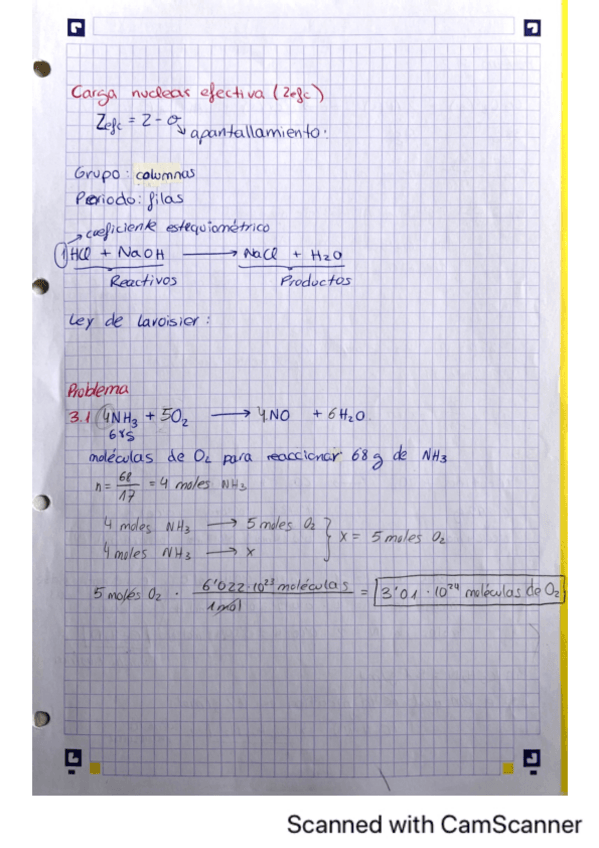 Carga nuclear efectiva (Zefc)
Zefc = Z - σ
apantallamiento.
Grupo: columnas
Periodo: filas
coeficiente estequiométrico
1HCl + NaOH → NaCl + H2O
Reactivos Productos
Ley de Lavoisier:
Problema
3.1 4NH3 + 5O2 → 4NO + 6H2O
moléculas de O2 para reaccionar 68 g de NH3
n = 68/17 = 4 moles NH3
4 moles NH3 → 5 moles O2
4 moles NH3 → x
x = 5 moles O2
5 moles O2 · 6'022·10²³ moléculas / 1 mol = 3'01 · 10²⁴ moléculas de O2
Scanned with CamScanner